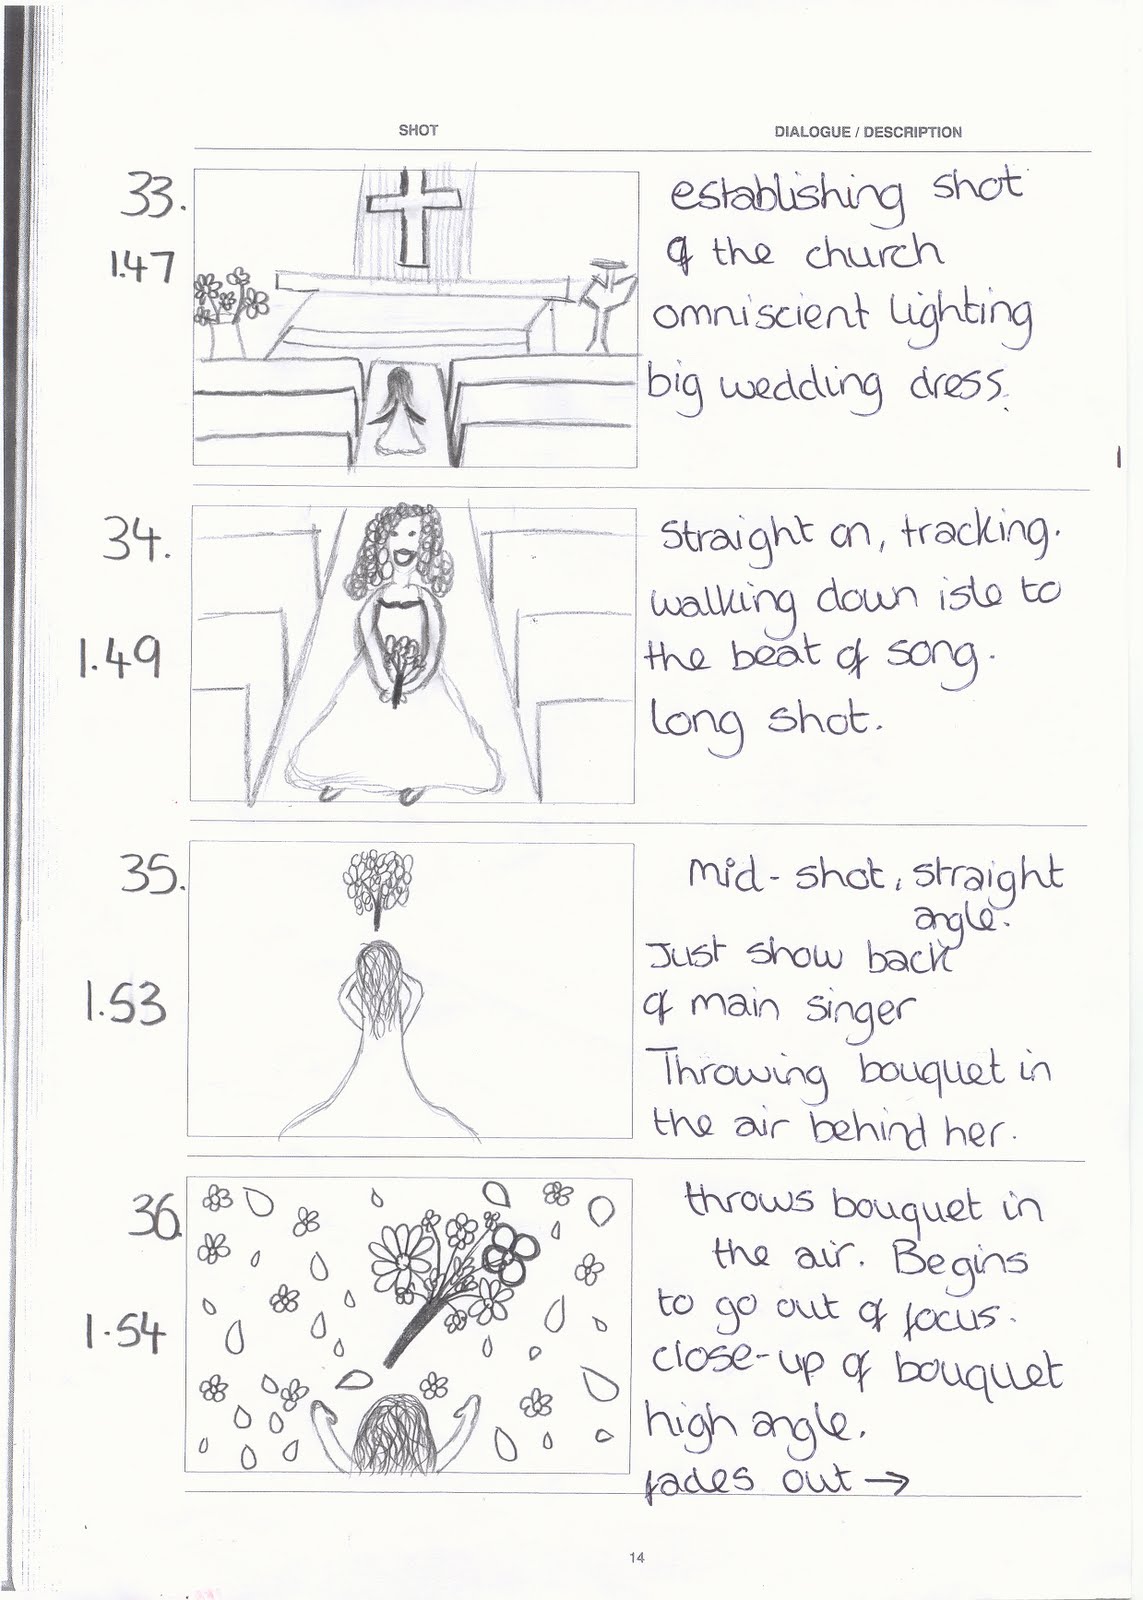 SHOT
DIALOGUE / DESCRIPTION
33.
1.47
establishing shot
of the church
omniscient lighting
big wedding dress.
34.
1.49
straight on, tracking.
walking down isle to
the beat of song.
long shot.
35.
1.53
Mid-shot, straight
angle.
Just show back
of main singer
Throwing bouquet in
the air behind her.
36.
1.54
throws bouquet in
the air. Begins
to go out of focus.
close-up of bouquet
high angle.
fades out →
14